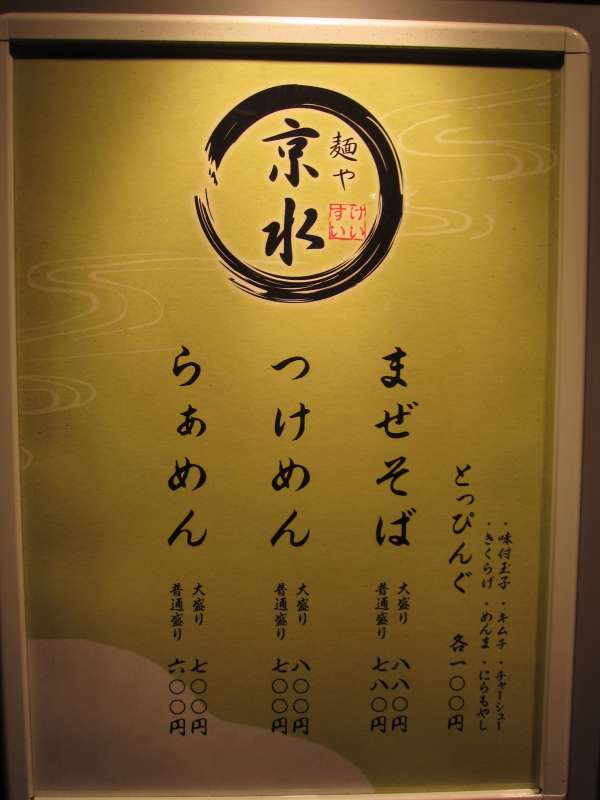 麺や
京水
けい
すい
・味付玉子・キムチ・チャーシュー
・きくらげ・めんま・にらもやし
とっぴんぐ 各一〇〇円
まぜそば
大盛り 八八〇円
普通盛り 七八〇円
つけめん
大盛り 八〇〇円
普通盛り 七〇〇円
らぁめん
大盛り 七〇〇円
普通盛り 六〇〇円